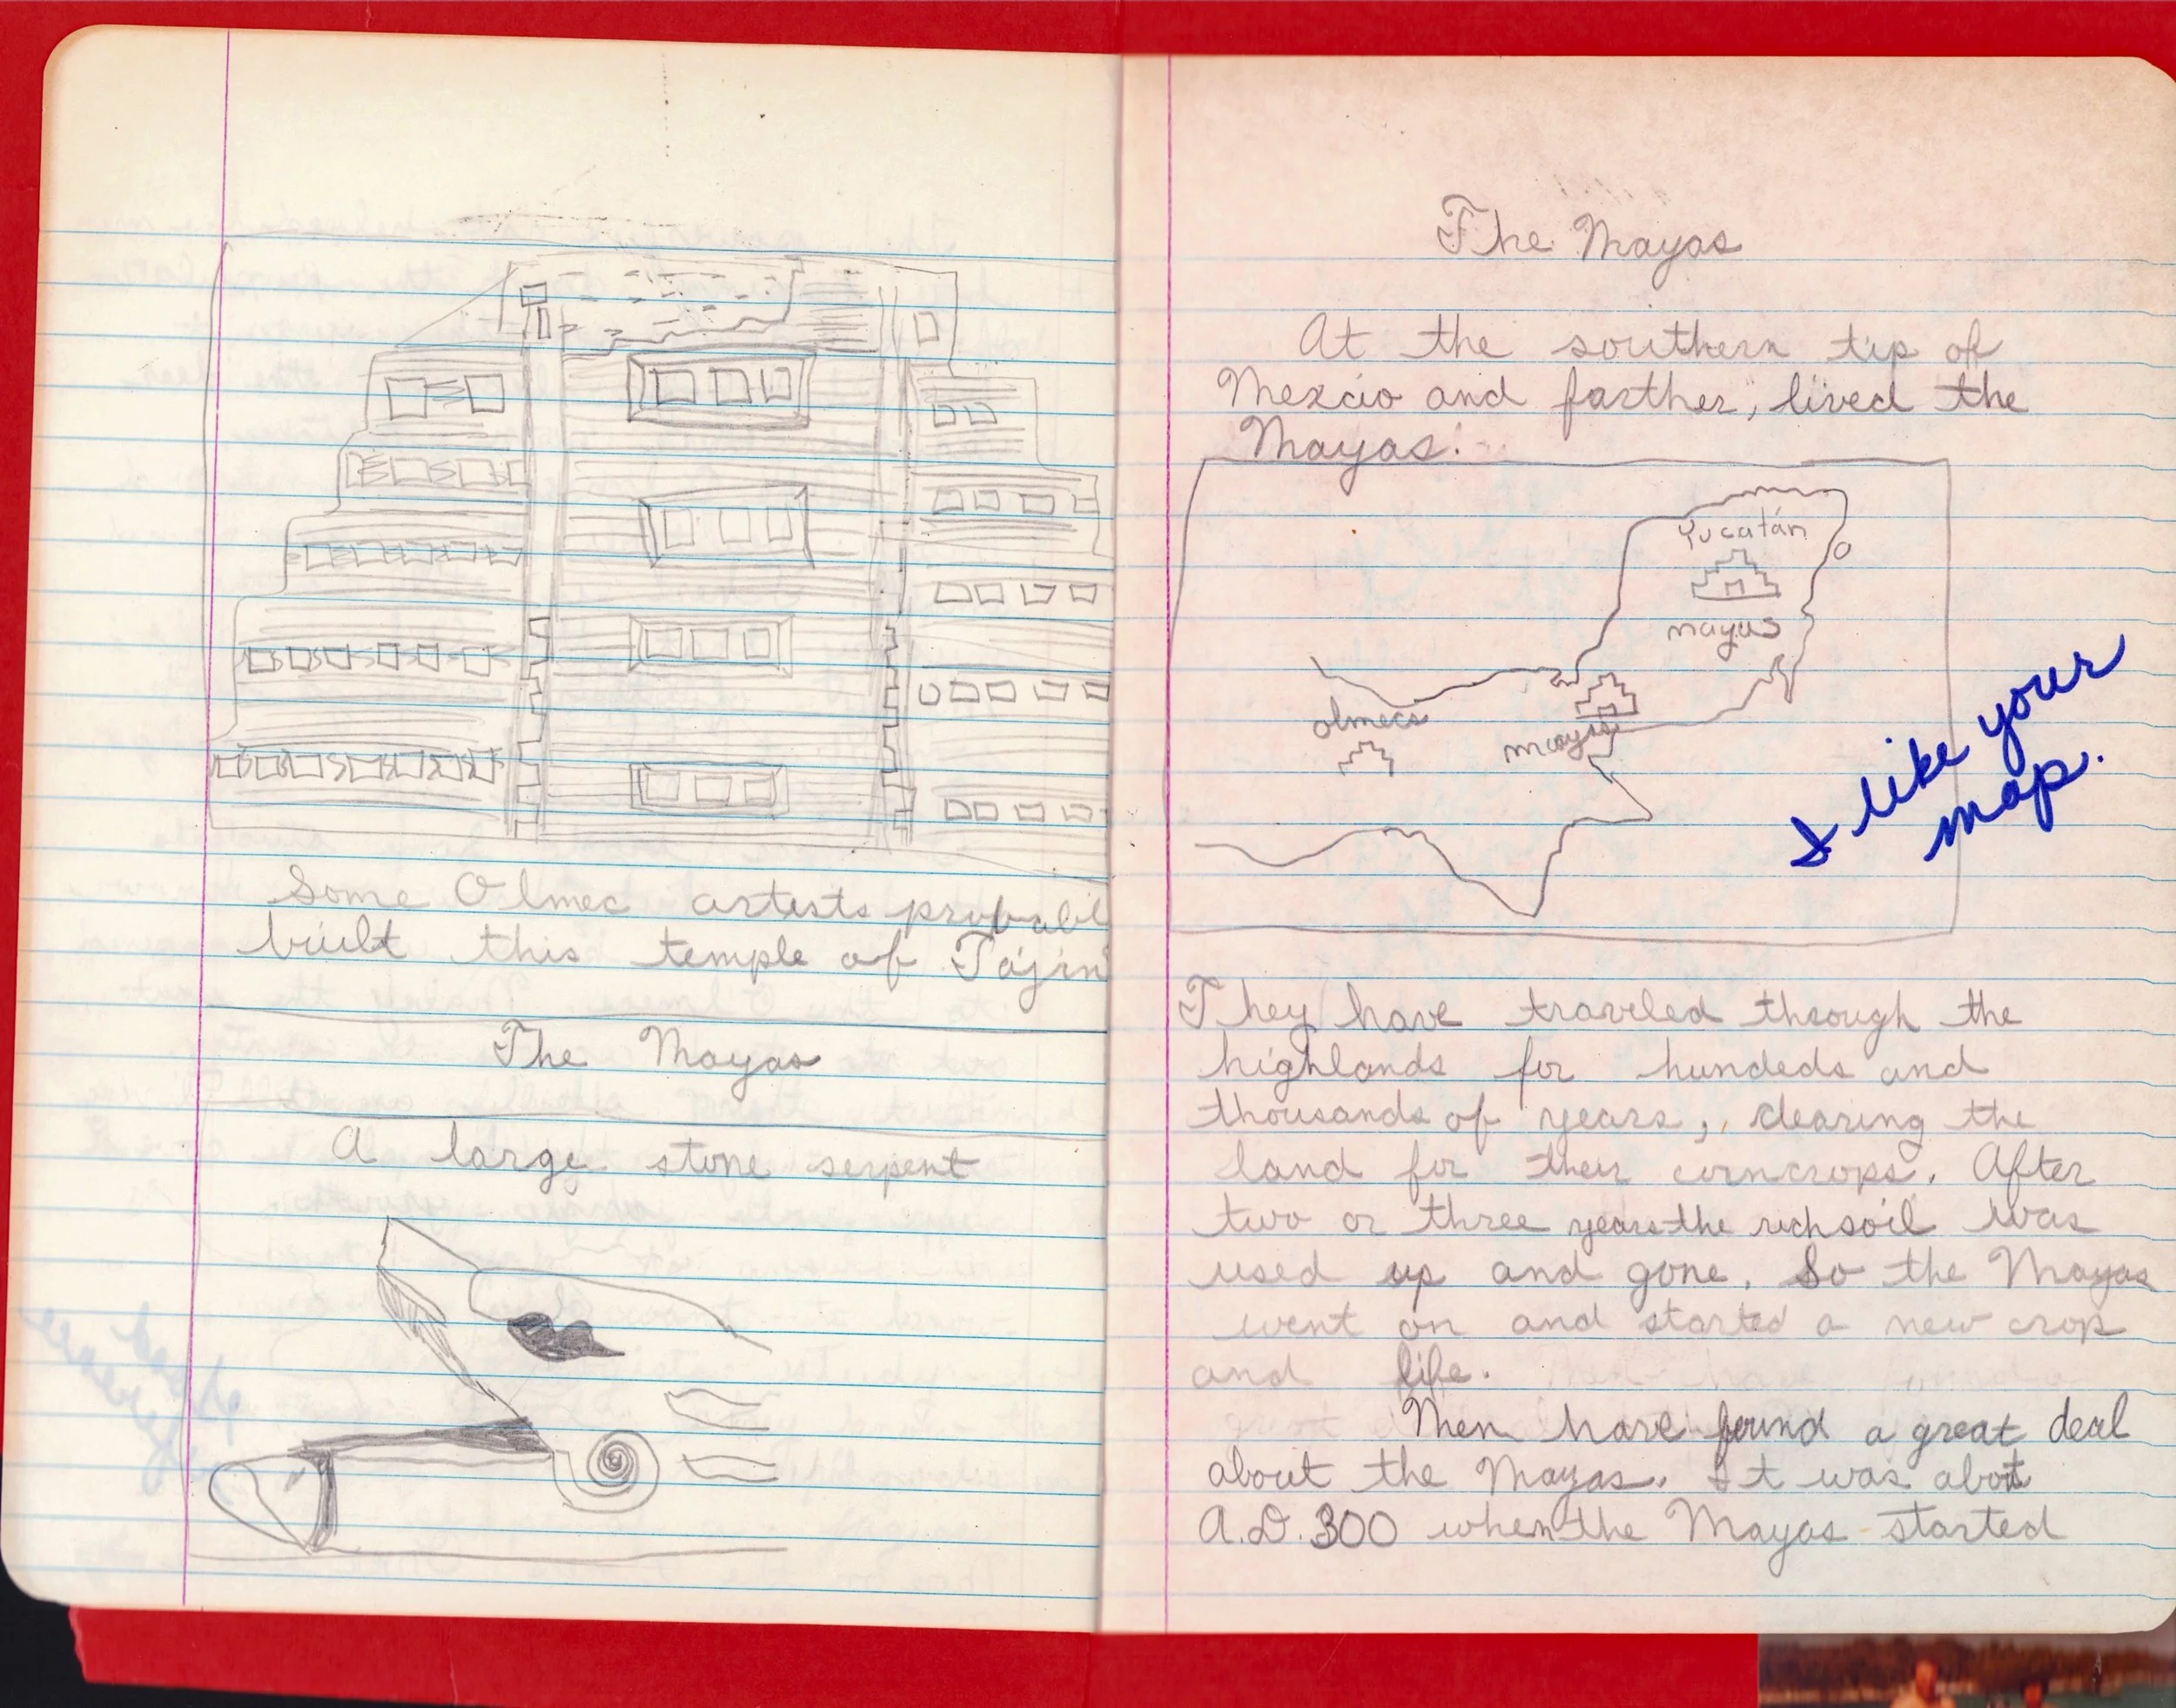 Some Olmec artists probabl
built this temple of Tajin
The Mayas
A large stone serpent
The Mayas
At the southern tip of
Mexcio and farther, lived the
Mayas.
Yucatán
mayas
olmecs
mayas
I like your
map.
They have traveled through the
highlands for hundeds and
thousands of years, clearing the
land for their corncrops. After
two or three years the rich soil was
used up and gone. So the Mayas
went on and started a new crop
and life.
Men have found a great deal
about the Mayas. It was about
A.D. 300 when the Mayas started